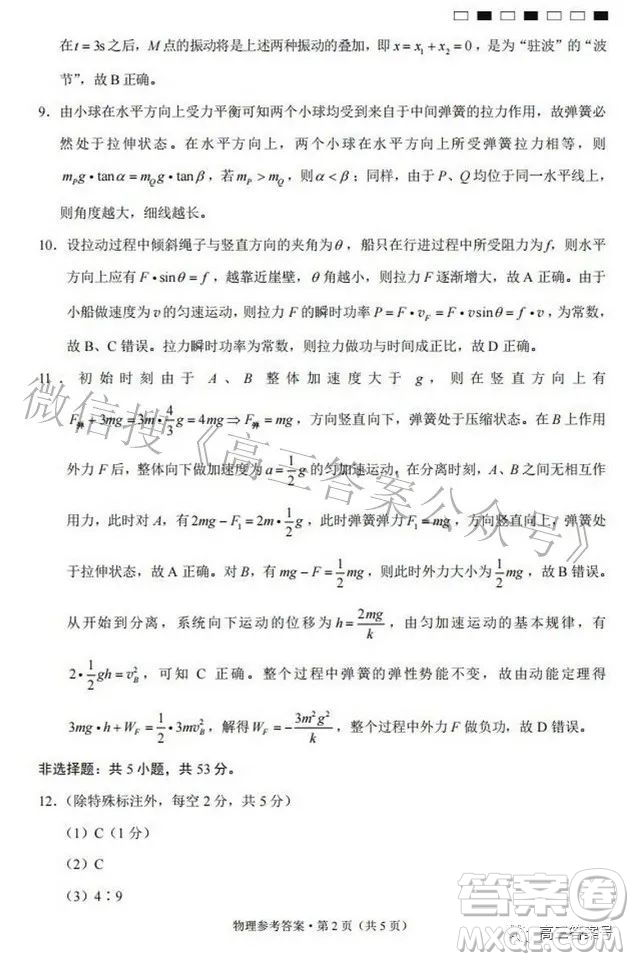 在 t = 3s 之后，M 点的振动将是上述两种振动的叠加，即 x = x₁ + x₂ = 0，是为“驻波”的“波
节”，故 B 正确。
9．由小球在水平方向上受力平衡可知两个小球均受到来自于中间弹簧的拉力作用，故弹簧必
然处于拉伸状态。在水平方向上，两个小球在水平方向上所受弹簧拉力相等，则
m_P g•tanα = m_Q g•tanβ，若 m_P > m_Q，则 α < β；同样，由于 P、Q 均位于同一水平线上，
则角度越大，细线越长。
10．设拉动过程中倾斜绳子与竖直方向的夹角为 θ，船只在行进过程中所受阻力为 f，则水平
方向上应有 F•sinθ = f，越靠近崖壁，θ 角越小，则拉力 F 逐渐增大，故 A 正确。由于
小船做速度为 v 的匀速运动，则拉力 F 的瞬时功率 P = F•v_F = F•vsinθ = f•v，为常数，
故 B、C 错误。拉力瞬时功率为常数，则拉力做功与时间成正比，故 D 正确。
11．初始时刻由于 A、B 整体加速度大于 g，则在竖直方向上有
F弹 + 3mg = 3m•4/3 g = 4mg ⇒ F弹 = mg，方向竖直向下，弹簧处于压缩状态。在 B 上作用
外力 F 后，整体向下做加速度为 a = 1/2 g 的匀加速运动，在分离时刻，A、B 之间无相互作
用力，此时对 A，有 2mg − F₁ = 2m•1/2 g，此时弹簧弹力 F₁ = mg，方向竖直向上，弹簧处
于拉伸状态，故 A 正确。对 B，有 mg − F = 1/2 mg，则此时外力大小为 1/2 mg，故 B 错误。
从开始到分离，系统向下运动的位移为 h = 2mg/k，由匀加速运动的基本规律，有
2•1/2 gh = v_B²，可知 C 正确。整个过程中弹簧的弹性势能不变，故由动能定理得
3mg•h + W_F = 1/2•3mv_B²，解得 W_F = −3m²g²/k，整个过程中外力 F 做负功，故 D 错误。
非选择题：共 5 小题，共 53 分。
12．（除特殊标注外，每空 2 分，共 5 分）
（1）C（1 分）
（2）C
（3）4∶9
物理参考答案•第 2 页（共 5 页）
微信搜《高三答案公众号》
答案圈
MXQE.COM
高三答案号